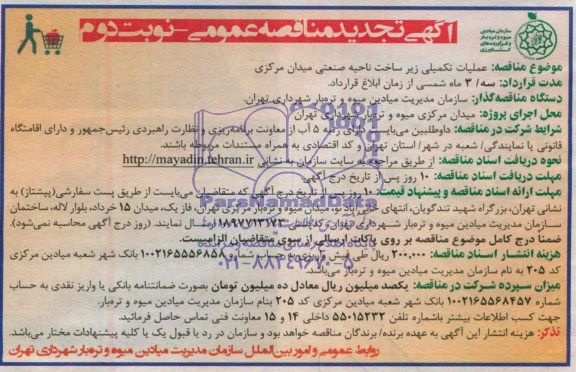 آگهی تجدید مناقصه عمومی - نوبت دوم
سازمان میادین
میوه و تره‌بار
و فرآورده‌های
کشاورزی
موضوع مناقصه: عملیات تکمیلی زیر ساخت ناحیه صنعتی میدان مرکزی
مدت قرارداد: سه/ ۳ ماه شمسی از زمان ابلاغ قرارداد.
دستگاه مناقصه‌گذار: سازمان مدیریت میادین میوه و تره‌بار شهرداری تهران.
محل اجرای پروژه: میدان مرکزی میوه و تره‌بار شهرداری تهران
شرایط شرکت در مناقصه: داوطلبین می‌بایست دارای رتبه ۵ آب از معاونت برنامه‌ریزی و نظارت راهبردی رئیس‌جمهور و دارای اقامتگاه
قانونی یا نمایندگی/ شعبه در شهر/ استان تهران و کد اقتصادی به همراه مستندات مربوطه باشند.
نحوه دریافت اسناد مناقصه: از طریق مراجعه به سایت سازمان به نشانی http://mayadin.tehran.ir
مهلت دریافت اسناد مناقصه: ۱۰ روز پس از تاریخ درج آگهی
مهلت ارائه اسناد مناقصه و پیشنهاد قیمت: ۱۰ روز پس از تاریخ درج آگهی که متقاضیان می‌بایست از طریق پست سفارشی(پیشتاز) به
نشانی تهران، بزرگراه شهید تندگویان، انتهای میوه و تره‌بار مرکزی تهران، فاز یک، میدان ۱۵ خرداد، بلوار لاله، ساختمان
سازمان مدیریت میادین میوه و تره‌بار شهرداری تهران کدپستی ۱۸۹۷۷۱۳۱۷۳ ارسال نمایند. (روز درج آگهی محاسبه نمی‌شود).
ضمناً درج کامل موضوع مناقصه بر روی پاکات ارسالی از سوی متقاضیان الزامیست.
هزینه انتشار اسناد مناقصه: ۲۰۰,۰۰۰ ریال طی فیش واریزی به حساب شماره ۱۰۰۲۱۶۵۵۵۶۸۵۸ بانک شهر شعبه میادین مرکزی
کد ۲۰۵ به نام سازمان مدیریت میادین میوه و تره‌بار می‌باشد.
میزان سپرده شرکت در مناقصه: یکصد میلیون ریال معادل ده میلیون تومان بصورت ضمانتنامه بانکی یا واریز نقدی به حساب
شماره ۱۰۰۲۱۶۵۵۶۸۴۵۷ بانک شهر شعبه میادین مرکزی کد ۲۰۵ بنام سازمان مدیریت میادین میوه و تره‌بار.
جهت کسب اطلاعات بیشتر باشماره تلفن ۵۵۰۱۵۲۳۲ داخلی ۱۴ و ۱۵ معاونت فنی تماس حاصل فرمائید.
تذکر: هزینه انتشار این آگهی به عهده برنده/ برندگان مناقصه خواهد بود و سازمان در رد یا قبول یک یا کلیه پیشنهادات مختار می‌باشد.
روابط عمومی و امور بین‌الملل سازمان مدیریت میادین میوه و تره‌بار شهرداری تهران
ParsNamadData
۰۲۱-۸۸۳۴۹۶۷۰-۵